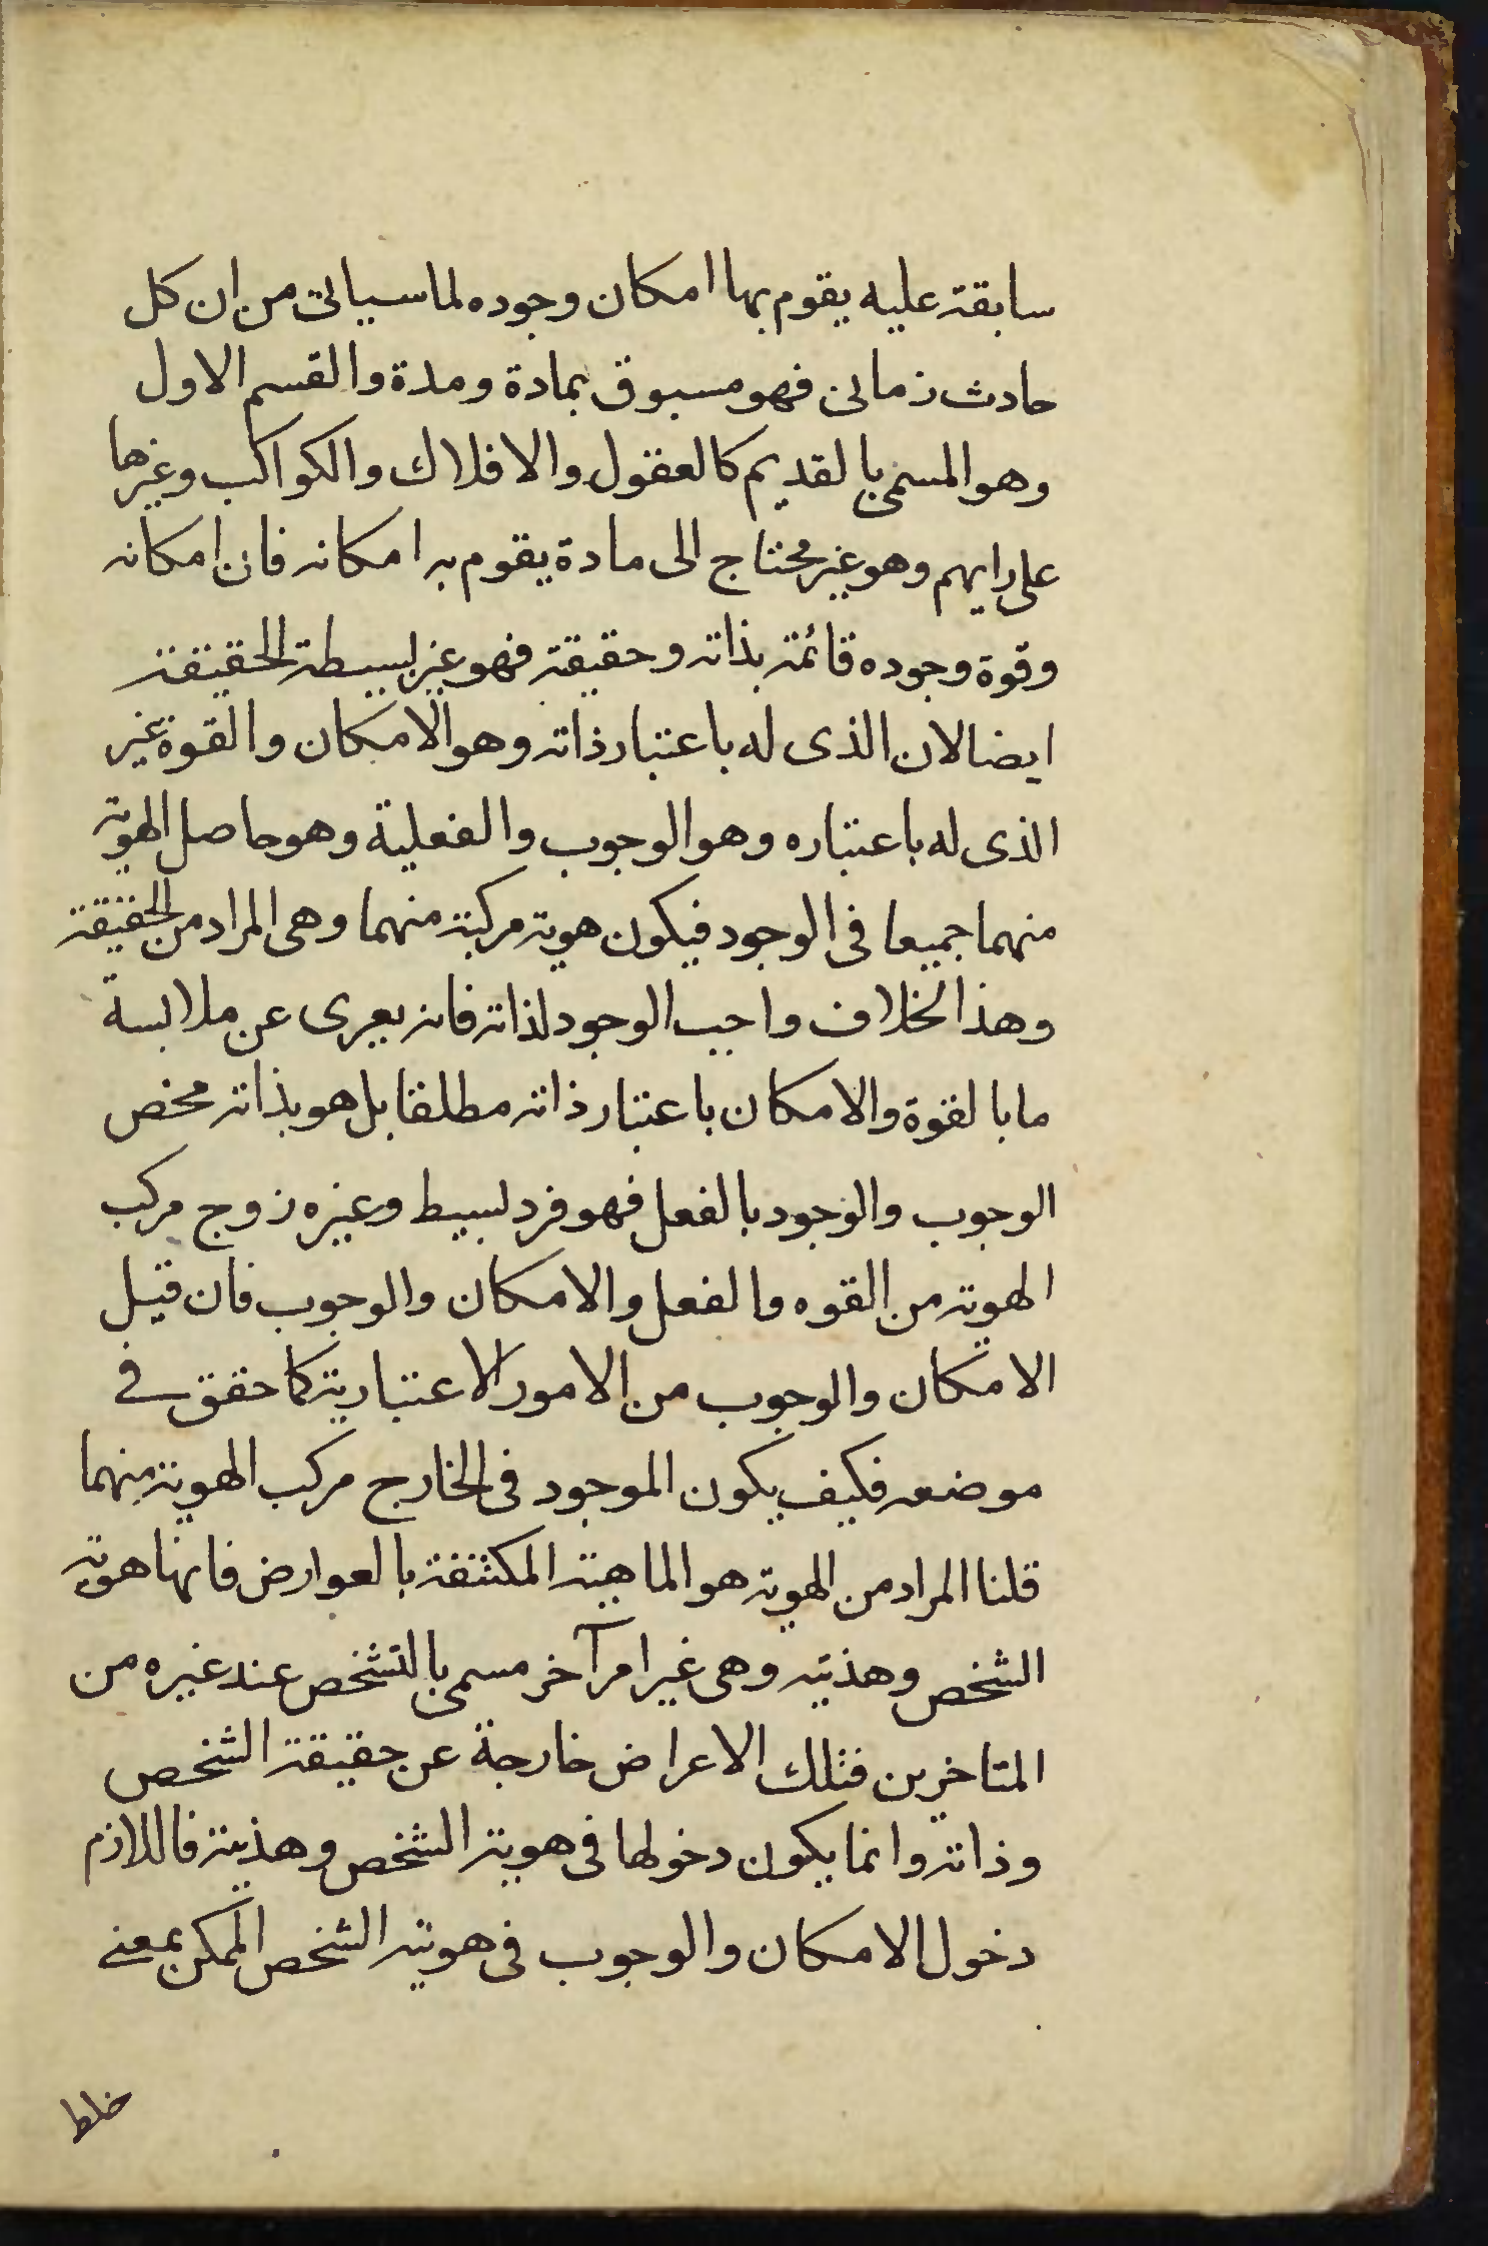 سابقة عليه يقوم بها امكان وجوده لما سياتى من ان كل
حادث زمانى فهو مسبوق بمادة ومدة والقسم الاول
وهو المسمى بالقديم كالعقول والافلاك والكواكب وغيرها
على رايهم وهو غير محتاج الى مادة يقوم به امكانه فان امكانه
وقوة وجوده قائمة بذاته وحقيقة فهو غير بسيطة الحقيقة
ايضا لان الذى له باعتبار ذاته وهو الامكان والقوة غير
الذى له باعتباره وهو الوجوب والفعلية وهو حاصل الهوية
منهما جميعا فى الوجود فيكون هوية مركبة منهما وهى المراد من الحقيقة
وهذا بخلاف واجب الوجود لذاته فانه يعرى عن ملابسة
ما بالقوة والامكان باعتبار ذاته مطلقا بل هو بذاته محض
الوجوب والوجود بالفعل فهو فرد بسيط وغيره زوج مركب
الهوية من القوه والفعل والامكان والوجوب فان قيل
الامكان والوجوب من الامور الاعتبارية كما حقق فى
موضعه فكيف يكون الموجود فى الخارج مركب الهوية منهما
قلنا المراد من الهوية هو الماهية المكتنفة بالعوارض فانها هوية
الشخص وهذيته وهى غير امر آخر مسمى بالتشخص عند غيره من
المتاخرين فتلك الاعراض خارجة عن حقيقة الشخص
وذاته وانما يكون دخولها فى هوية الشخص وهذيته فاللازم
دخول الامكان والوجوب فى هوية الشخص الممكن بمعنى
خلط